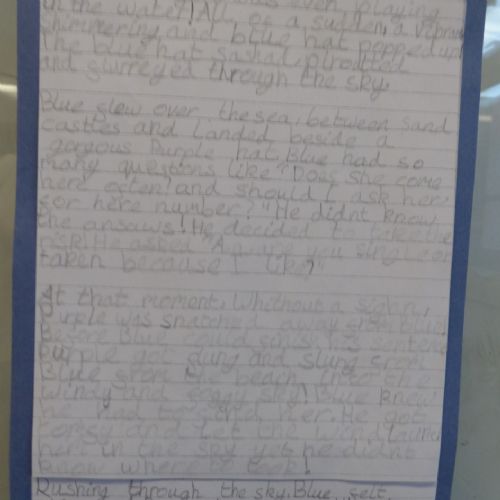 in the water! All of a sudden, a vibrant
shimmering and blue hat popped up
The blue hat sashad, pirouttad
and swrreyed through the sky.
Blue slew over the sea, between sand
castles and landed beside a
gorgeous Purple hat. Blue had so
many questions like "Does she come
here often? and should I ask her
sor here number?" He didnt know
the ansaws! He decided to take the
risk! He asked "A.. are you single or
taken because I like?"
At that moment, Whithout a sighn,
Purple was snatched away srom blue
Besore Blue could sinish his sentens
Purple got dung and slung srom
Blue srom the beach into the
windy and soggy sky! Blue knew
he had to sind her. He got
and let the wind launch
him in the sky yet he didnt
know where to look!
Rushing through the sky, Blue, selt